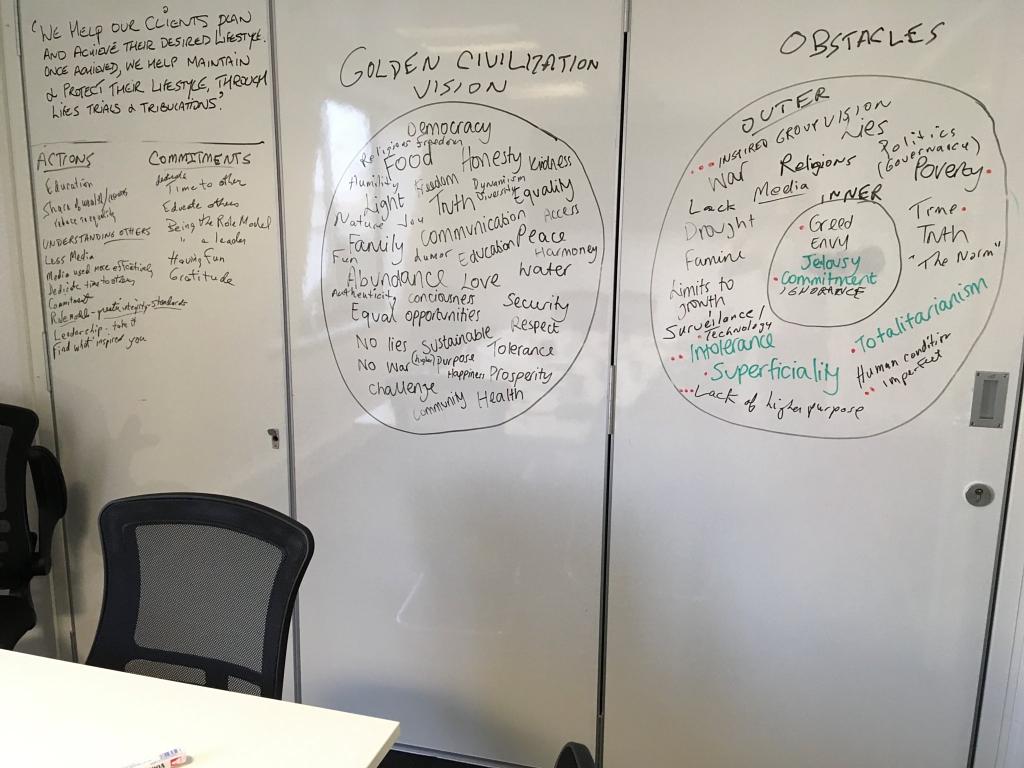 "WE HELP OUR CLIENTS PLAN
AND ACHIEVE THEIR DESIRED LIFESTYLE.
ONCE ACHIEVED, WE HELP MAINTAIN
& PROTECT THEIR LIFESTYLE, THROUGH
LIFES TRIALS & TRIBULATIONS".
ACTIONS
Education
Share of wealth/
reduce inequality
UNDERSTANDING OTHERS
Less Media
Media used more effectively
Dedicate time to others
Commitment
Role model - integrity - standards
Leadership - take it
Find what inspired you
COMMITMENTS
dedicate
Time to other
Educate others
Being the Role Model
" a leader
Having Fun
Gratitude
GOLDEN CIVILIZATION
VISION
Democracy
Religious freedom
Food Honesty Kindness
Humility Freedom Dynamism
Light Truth Diversity Equality
Nature Joy Communication Access
Family Humor Education Peace
Fun Harmoney
Abundance Love Water
Authenticity conciousness Security
Equal opportunities
No lies Sustainable Respect
No War (higher) Purpose Tolerance
Happiness Prosperity
Challenge
Community Health
OBSTACLES
OUTER
INSPIRED GROUP VISION
Lies
War Religions Politics
(Governancy)
Lack Media Poverty
Drought
Famine
Limits to
growth
Surveilance/
Technology
Intolerance
Superficiality
Lack of higher purpose
INNER
Greed
ENVY
Jelousy
Commitment
IGNORANCE
Time
Truth
"The Norm"
Totalitarianism
Human condition
imperfect